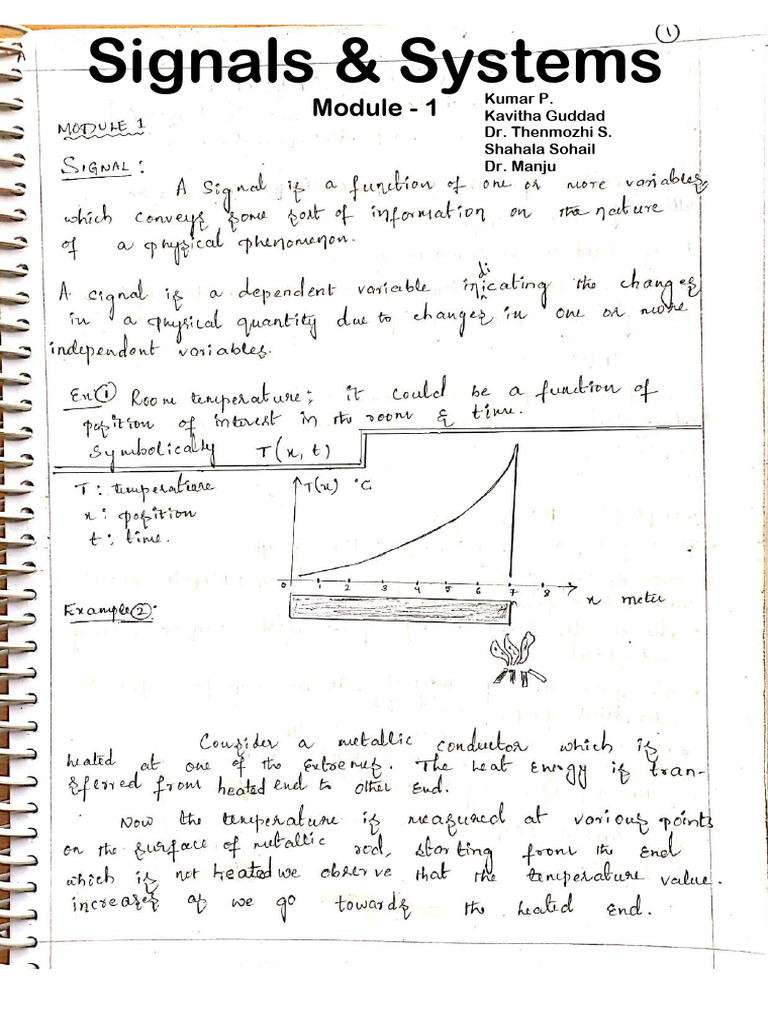 ①
Signals & Systems
Module - 1
Kumar P.
Kavitha Guddad
Dr. Thenmozhi S.
Shahala Sohail
Dr. Manju
MODULE 1
SIGNAL:
A Signal is a function of one or more variables,
which conveys some sort of information on the nature
of a physical phenomenon.
A signal is a dependent variable indicating the changes
in a physical quantity due to changes in one or more
independent variables.
Ex① Room temperature; it could be a function of
position of interest in the room & time.
Symbolically T(x, t)
T: temperature
x: position
t: time.
T(x) °C
0 1 2 3 4 5 6 7 8
x meter
Example②:
Consider a metallic conductor which is
heated at one of the extremes. The heat energy is tran-
sferred from heated end to other end.
Now the temperature is measured at various points
on the surface of metallic rod, starting from the end
which is not heated we observe that the temperature value.
increases as we go towards the heated end.